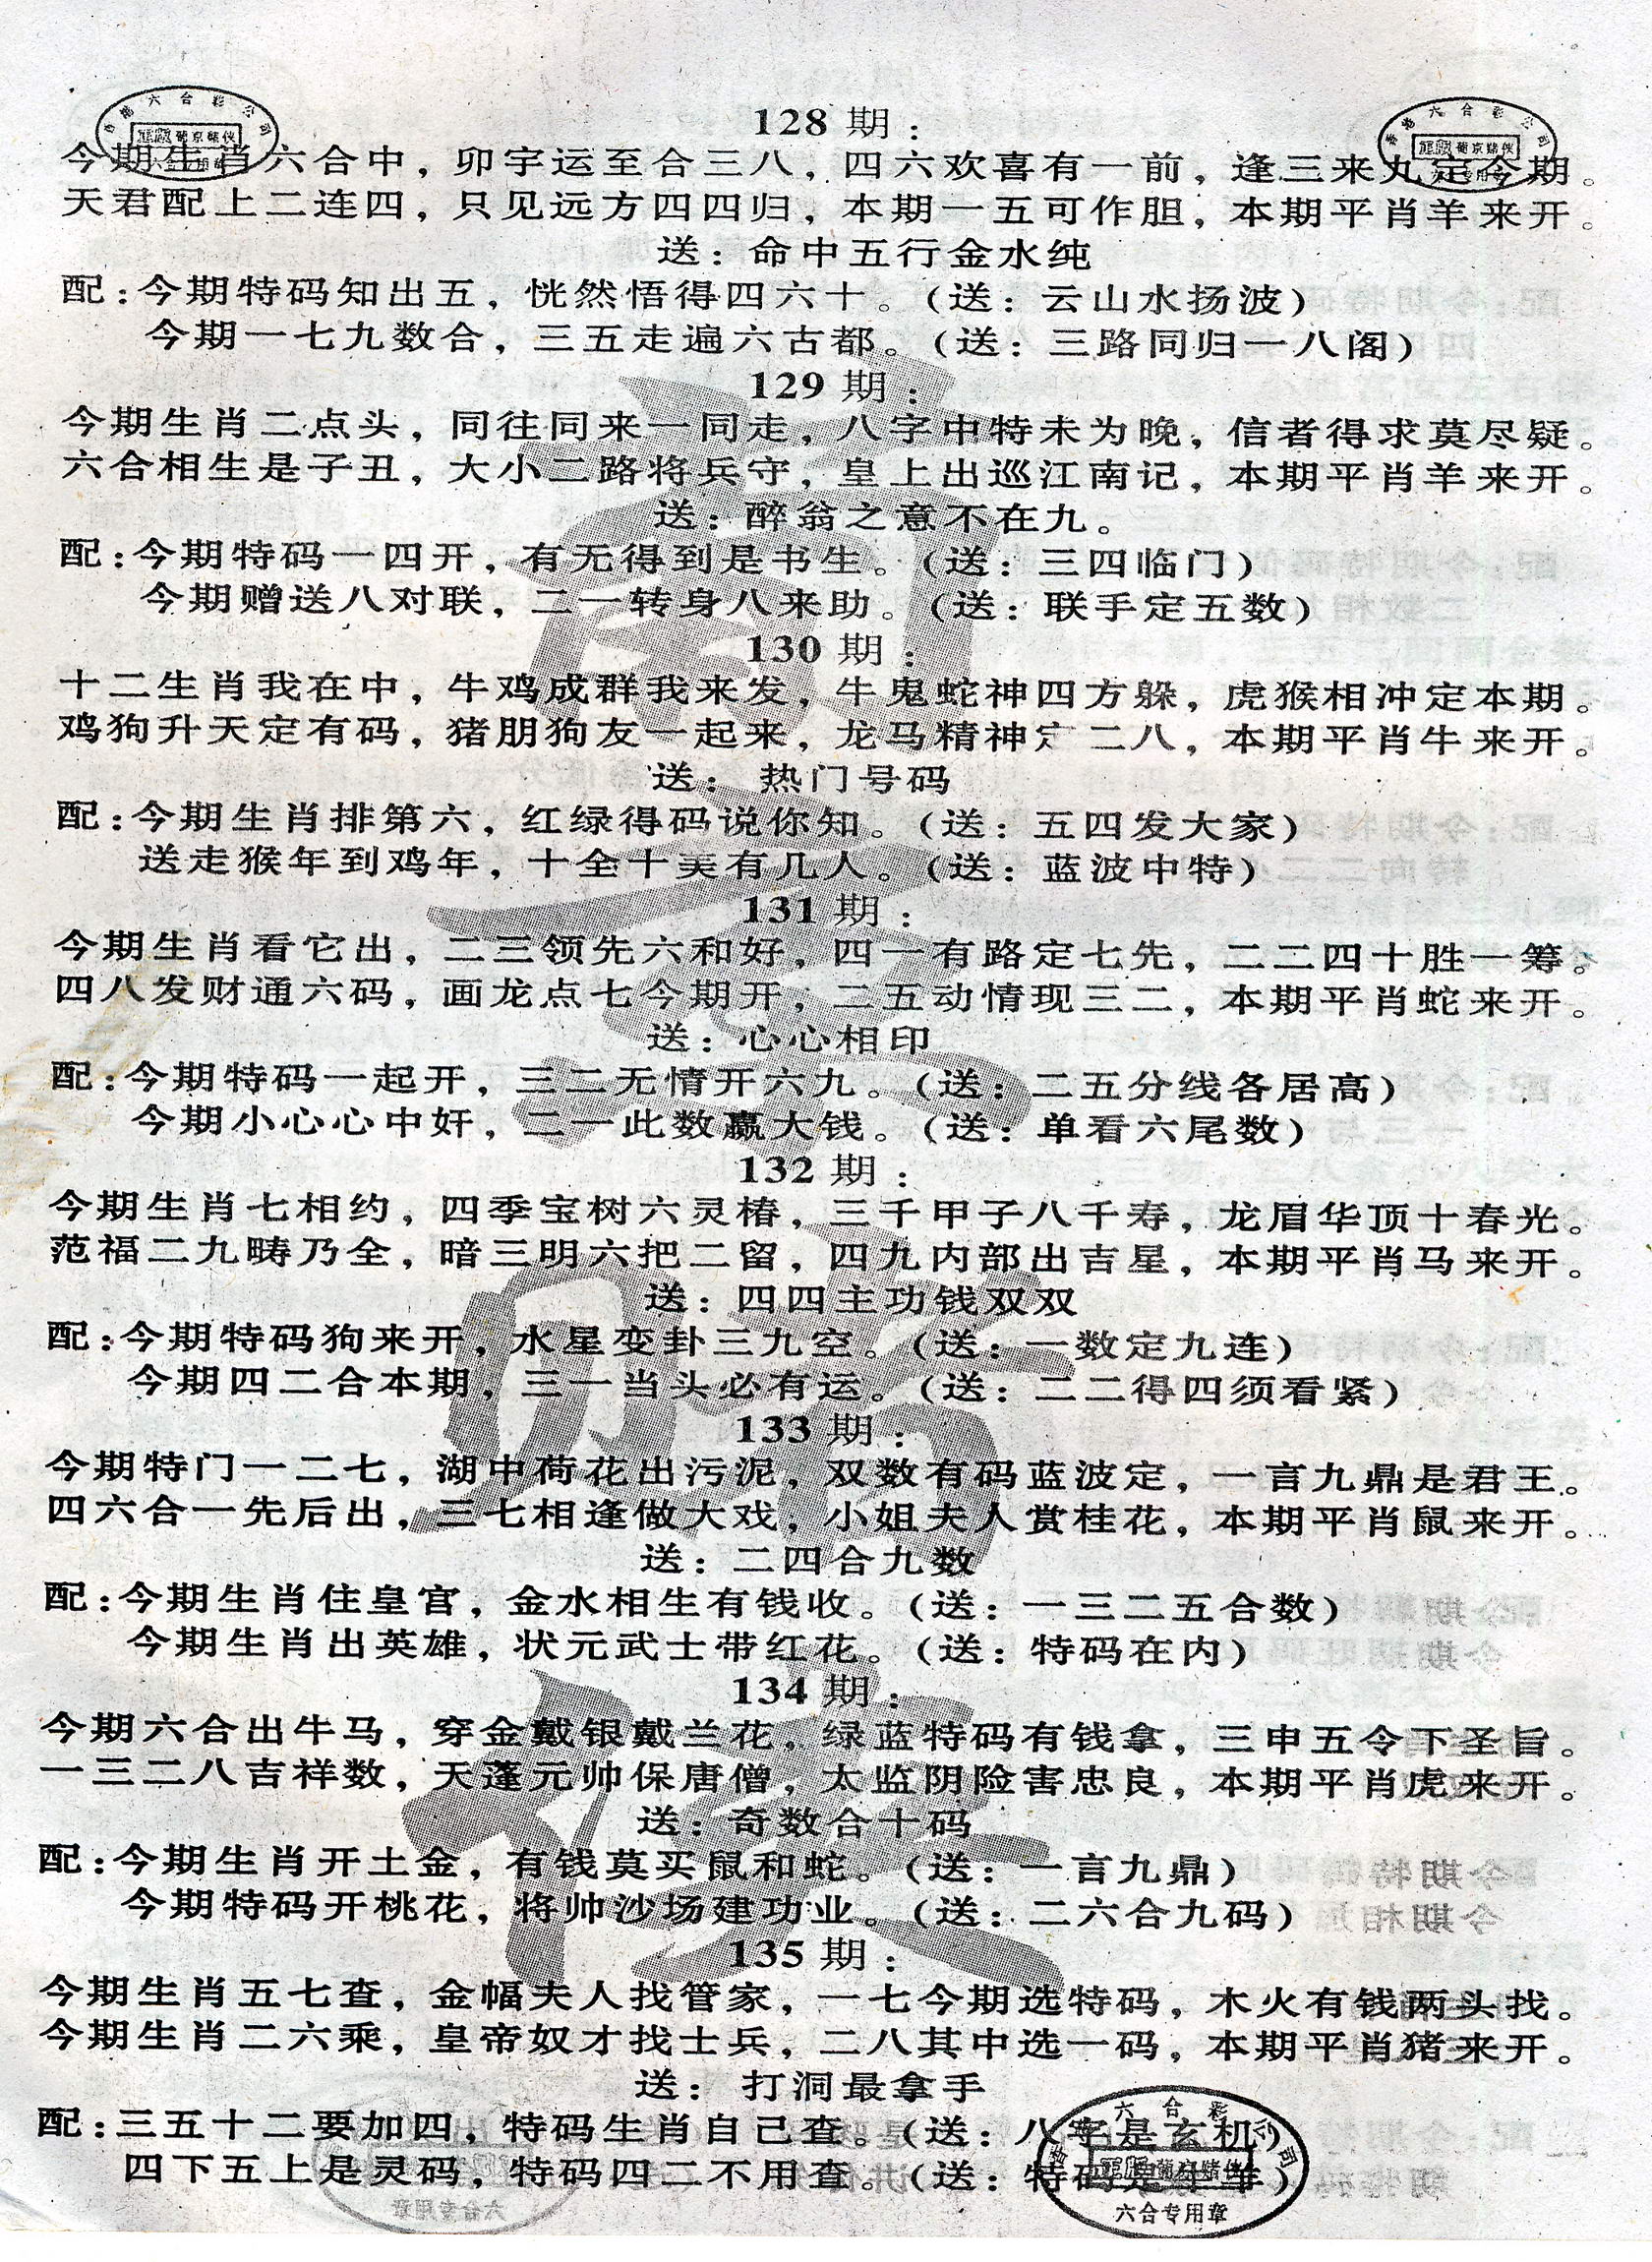 128 期：
今期生肖六合中，卯宇运至合三八，四六欢喜有一前，逢三来丸定今期。
天君配上二连四，只见远方四四归，本期一五可作胆，本期平肖羊来开。
送：命中五行金水纯
配：今期特码知出五，恍然悟得四六十。（送：云山水扬波）
今期一七九数合，三五走遍六古都。（送：三路同归一八阁）
129 期：
今期生肖二点头，同往同来一同走，八字中特未为晚，信者得求莫尽疑。
六合相生是子丑，大小二路将兵守，皇上出巡江南记，本期平肖羊来开。
送：醉翁之意不在九。
配：今期特码一四开，有无得到是书生。（送：三四临门）
今期赠送八对联，二一转身八来助。（送：联手定五数）
130 期：
十二生肖我在中，牛鸡成群我来发，牛鬼蛇神四方躲，虎猴相冲定本期。
鸡狗升天定有码，猪朋狗友一起来，龙马精神定二八，本期平肖牛来开。
送： 热门号码
配：今期生肖排第六，红绿得码说你知。（送：五四发大家）
送走猴年到鸡年，十全十美有几人。（送：蓝波中特）
131 期：
今期生肖看它出，二三领先六和好，四一有路定七先，二二四十胜一筹。
四八发财通六码，画龙点七今期开，二五动情现三二，本期平肖蛇来开。
送：心心相印
配：今期特码一起开，三二无情开六九。（送：二五分线各居高）
今期小心心中奸，二一此数赢大钱。（送：单看六尾数）
132 期：
今期生肖七相约，四季宝树六灵椿，三千甲子八千寿，龙眉华顶十春光。
范福二九畴乃全，暗三明六把二留，四九内部出吉星，本期平肖马来开。
送：四四主功钱双双
配：今期特码狗来开，水星变卦三九空。（送：一数定九连）
今期四二合本期，三一当头必有运。（送：二二得四须看紧）
133 期：
今期特门一二七，湖中荷花出污泥，双数有码蓝波定，一言九鼎是君王。
四六合一先后出，三七相逢做大戏，小姐夫人赏桂花，本期平肖鼠来开。
送：二四合九数
配：今期生肖住皇宫，金水相生有钱收。（送：一三二五合数）
今期生肖出英雄，状元武士带红花。（送：特码在内）
134 期：
今期六合出牛马，穿金戴银戴兰花，绿蓝特码有钱拿，三申五令下圣旨。
一三二八吉祥数，天蓬元帅保唐僧，太监阴险害忠良，本期平肖虎来开。
送：奇数合十码
配：今期生肖开土金，有钱莫买鼠和蛇。（送：一言九鼎）
今期特码开桃花，将帅沙场建功业。（送：二六合九码）
135 期：
今期生肖五七查，金幅夫人找管家，一七今期选特码，木火有钱两头找。
今期生肖二六乘，皇帝奴才找士兵，二八其中选一码，本期平肖猪来开。
送： 打洞最拿手
配：三五十二要加四，特码生肖自己查。（送：八字是玄机）
四下五上是灵码，特码四二不用查。（送：特码是牛羊）
六合专用章